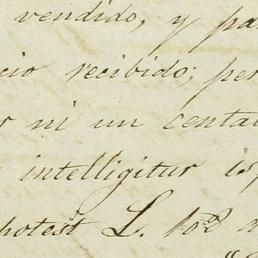 vendido, y pa
cio recibido; per
r ni un centa
intelligitur is
potest L. 108